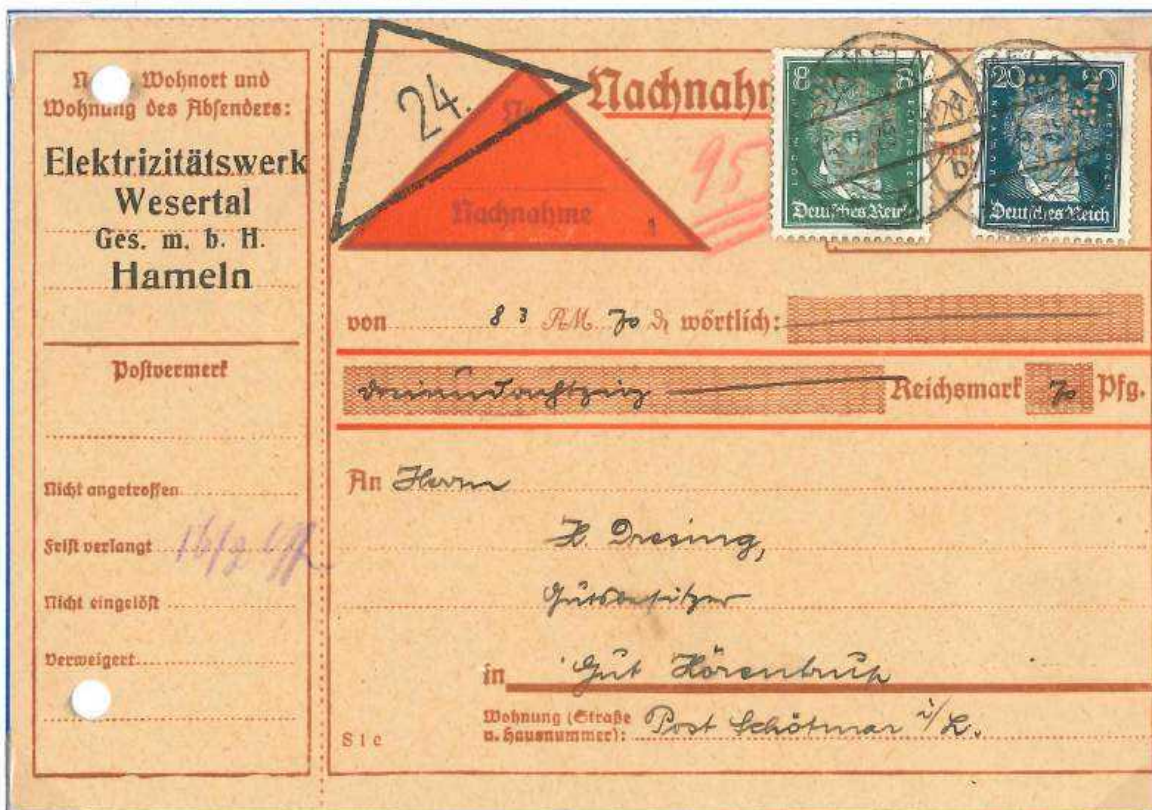 Wohnort und
Wohnung des Absenders:
Elektrizitätswerk
Wesertal
Ges. m. b. H.
Hameln
Postvermerk
Nicht angetroffen
Frist verlangt
Nicht eingelöst
Verweigert
24.
Nachnahme
Nachnahm
95
8 8
Deutsches Reich
20 20
Deutsches Reich
von 83 RM 70 ₰ wörtlich:
dreiundachtzig Reichsmark 70 Pfg.
An Herrn
H. Dresing,
Gutsbesitzer
in Gut Hörentrup
Wohnung (Straße
u. Hausnummer): Post Schötmar i/L.
S I c